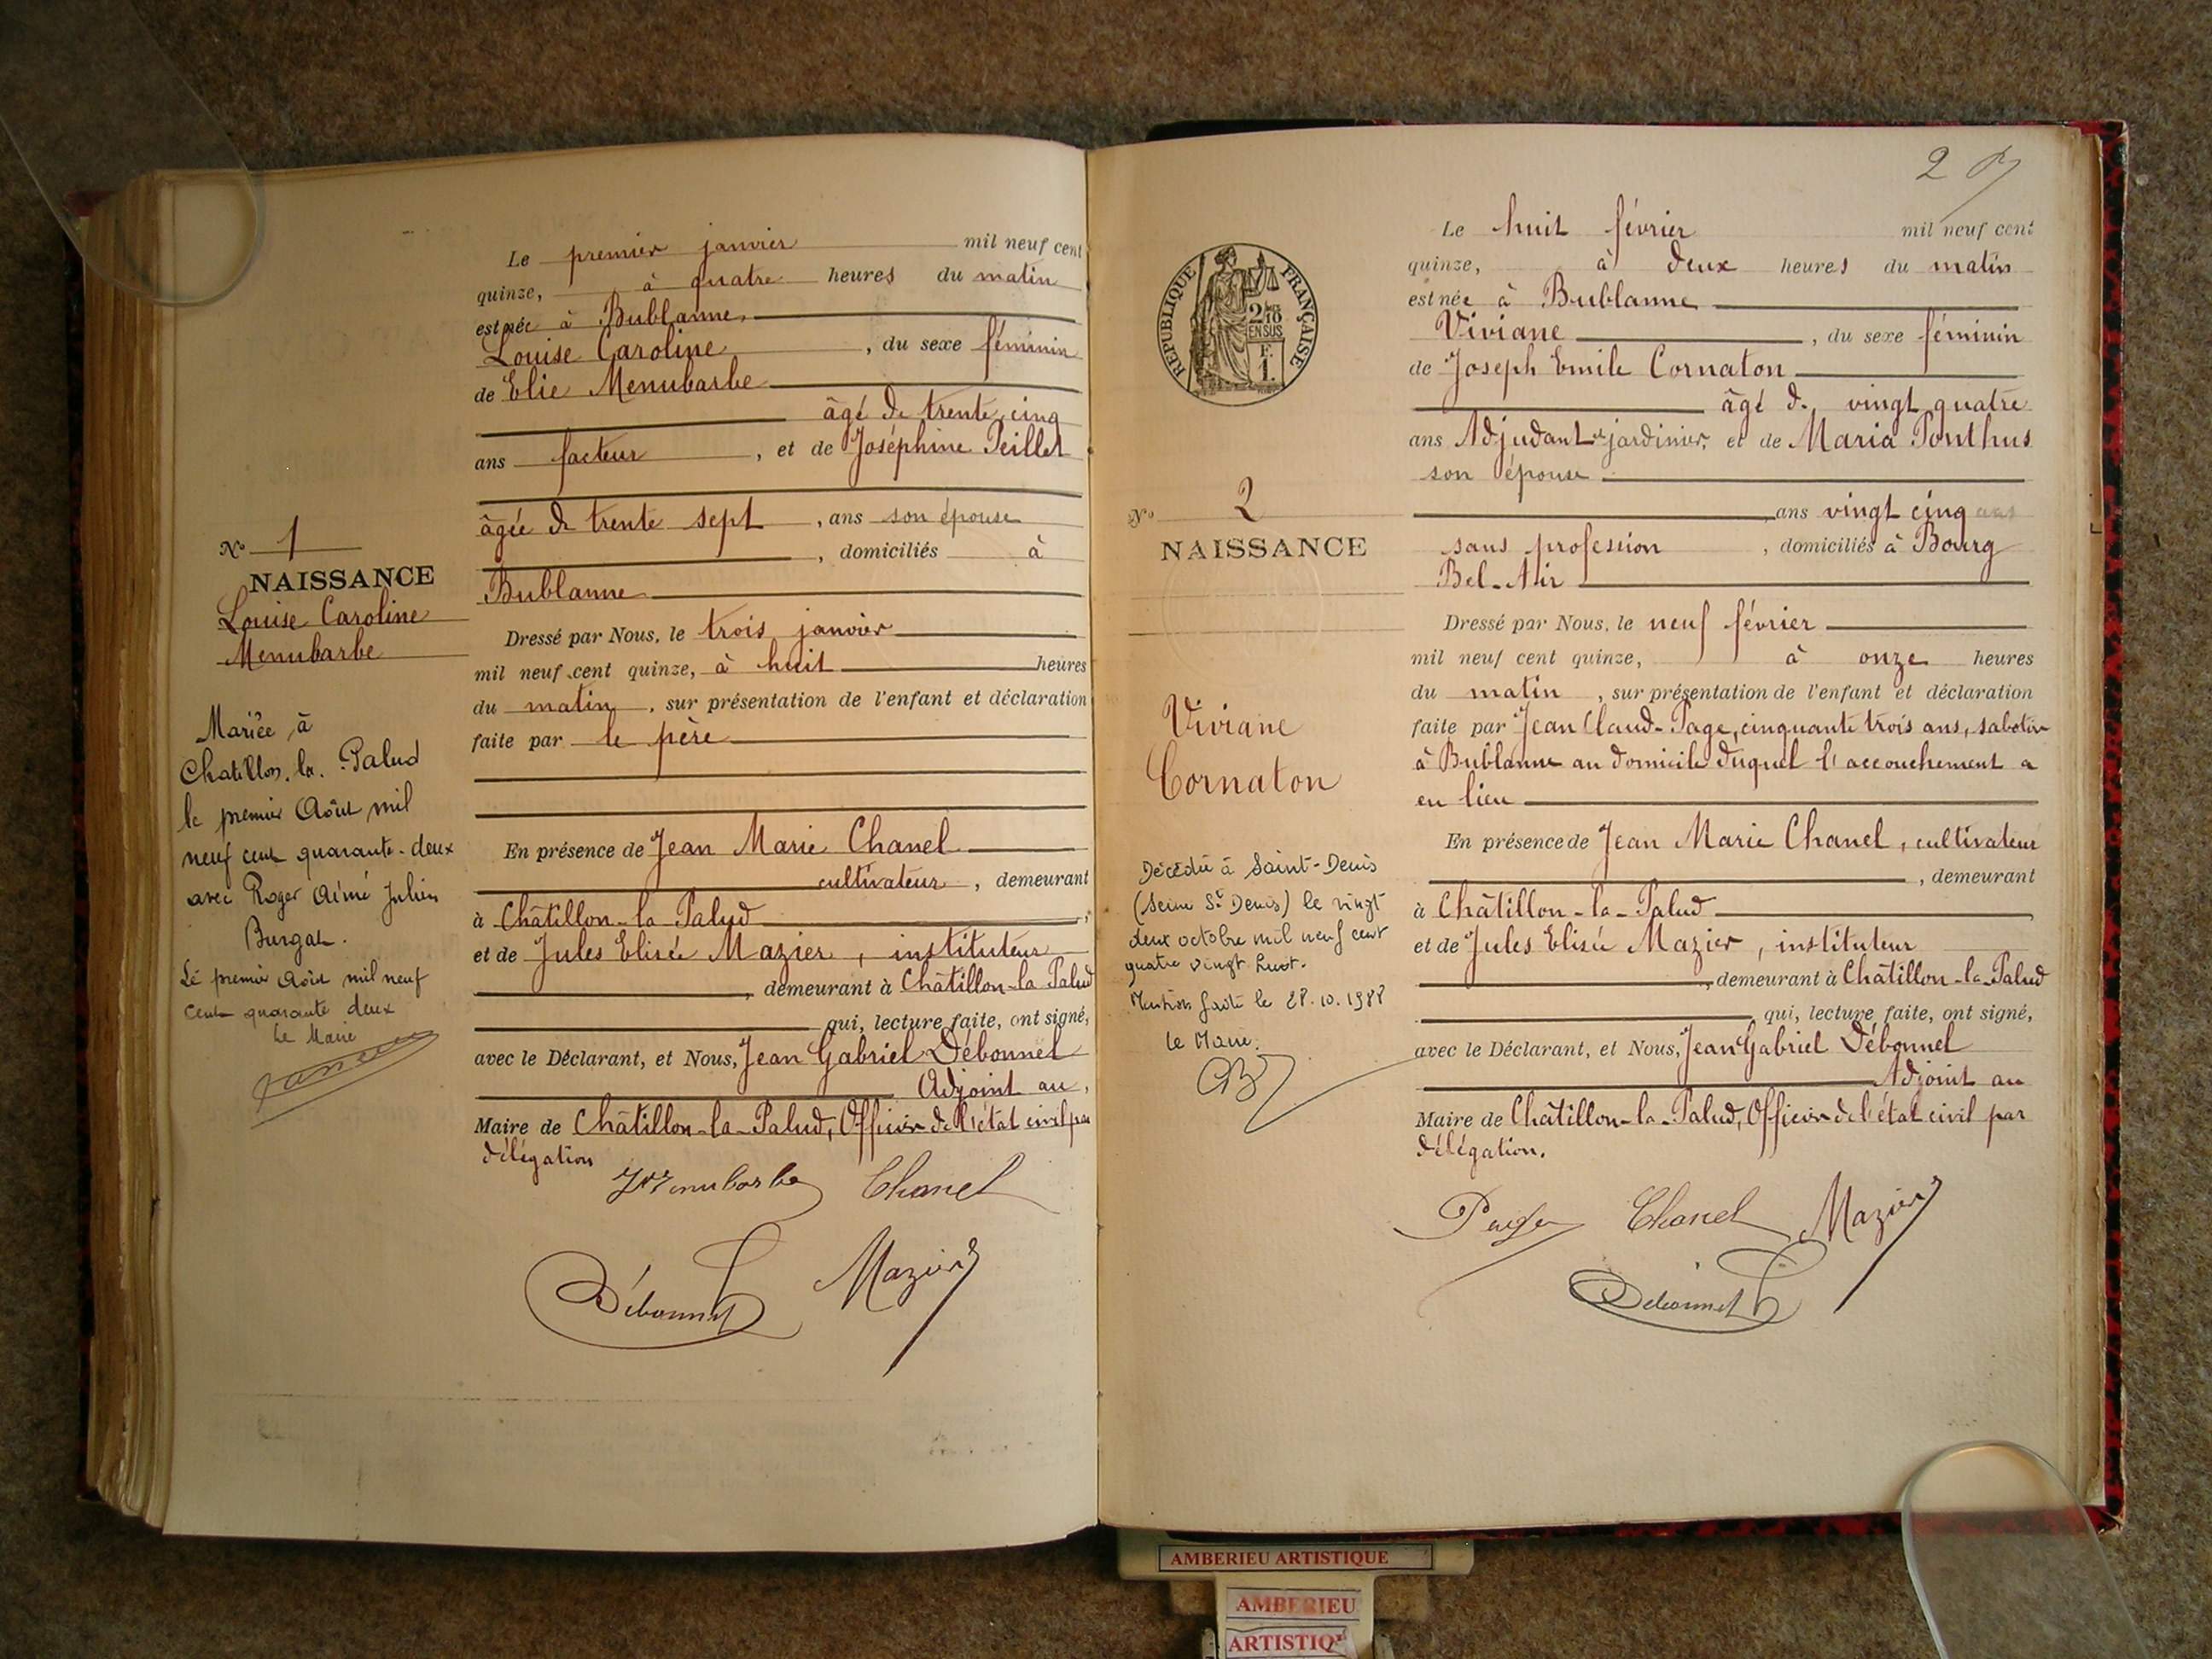 Le premier janvier mil neuf cent
quinze, à quatre heures du matin
est née à Bublanne,
Louise Caroline, du sexe féminin
de Elie Menubarbe
âgé de trente cinq
ans facteur, et de Joséphine Peillet
âgée de trente sept, ans son épouse
, domiciliés à
Bublanne
Nº 1
NAISSANCE
Louise Caroline
Menubarbe
Dressé par Nous, le trois janvier
mil neuf cent quinze, à huit heures
du matin, sur présentation de l'enfant et déclaration
faite par le père
En présence de Jean Marie Chanel
cultivateur, demeurant
à Châtillon-la-Palud,
et de Jules Elisée Mazier, instituteur
, demeurant à Châtillon-la Palud
qui, lecture faite, ont signé,
avec le Déclarant, et Nous, Jean Gabriel Débonnel
Adjoint au,
Maire de Châtillon-la-Palud, Officier de l'état civil par
délégation
Menubarbe Chanel
Débonnel Mazier
Mariée à
Chatillon. la. Palud
le premier Août mil
neuf cent quarante-deux
avec Roger Aimé Julien
Burgat.
Le premier Août mil neuf
cent quarante deux
Le Maire
2
RÉPUBLIQUE FRANÇAISE
2/10
EN SUS
F.
1.
Le huit février mil neuf cent
quinze, à deux heures du matin
est née à Bublanne
Viviane, du sexe féminin
de Joseph Emile Cornaton
âgé de vingt quatre
ans Adjudant et jardinier, et de Maria Ponthus
son épouse
ans vingt cinq ans
sans profession, domiciliés à Bourg
Bel-Air
Nº 2
NAISSANCE
Viviane
Cornaton
Dressé par Nous, le neuf février
mil neuf cent quinze, à onze heures
du matin, sur présentation de l'enfant et déclaration
faite par Jean Claude Page, cinquante trois ans, sabotier
à Bublanne au domicile duquel l'accouchement a
eu lieu
En présence de Jean Marie Chanel, cultivateur
, demeurant
à Châtillon-la-Palud,
et de Jules Elisée Mazier, instituteur
, demeurant à Châtillon-la-Palud
qui, lecture faite, ont signé,
avec le Déclarant, et Nous, Jean Gabriel Débonnel
Adjoint au
Maire de Châtillon-la-Palud, Officier de l'état civil par
délégation.
Page Chanel Mazier
Débonnel
Décédée à Saint-Denis
(Seine St Denis) le vingt
deux octobre mil neuf cent
quatre vingt huit.
Mention faite le 28.10.1988
le Maire.
AMBERIEU ARTISTIQUE
AMBERIEU
ARTISTIQ